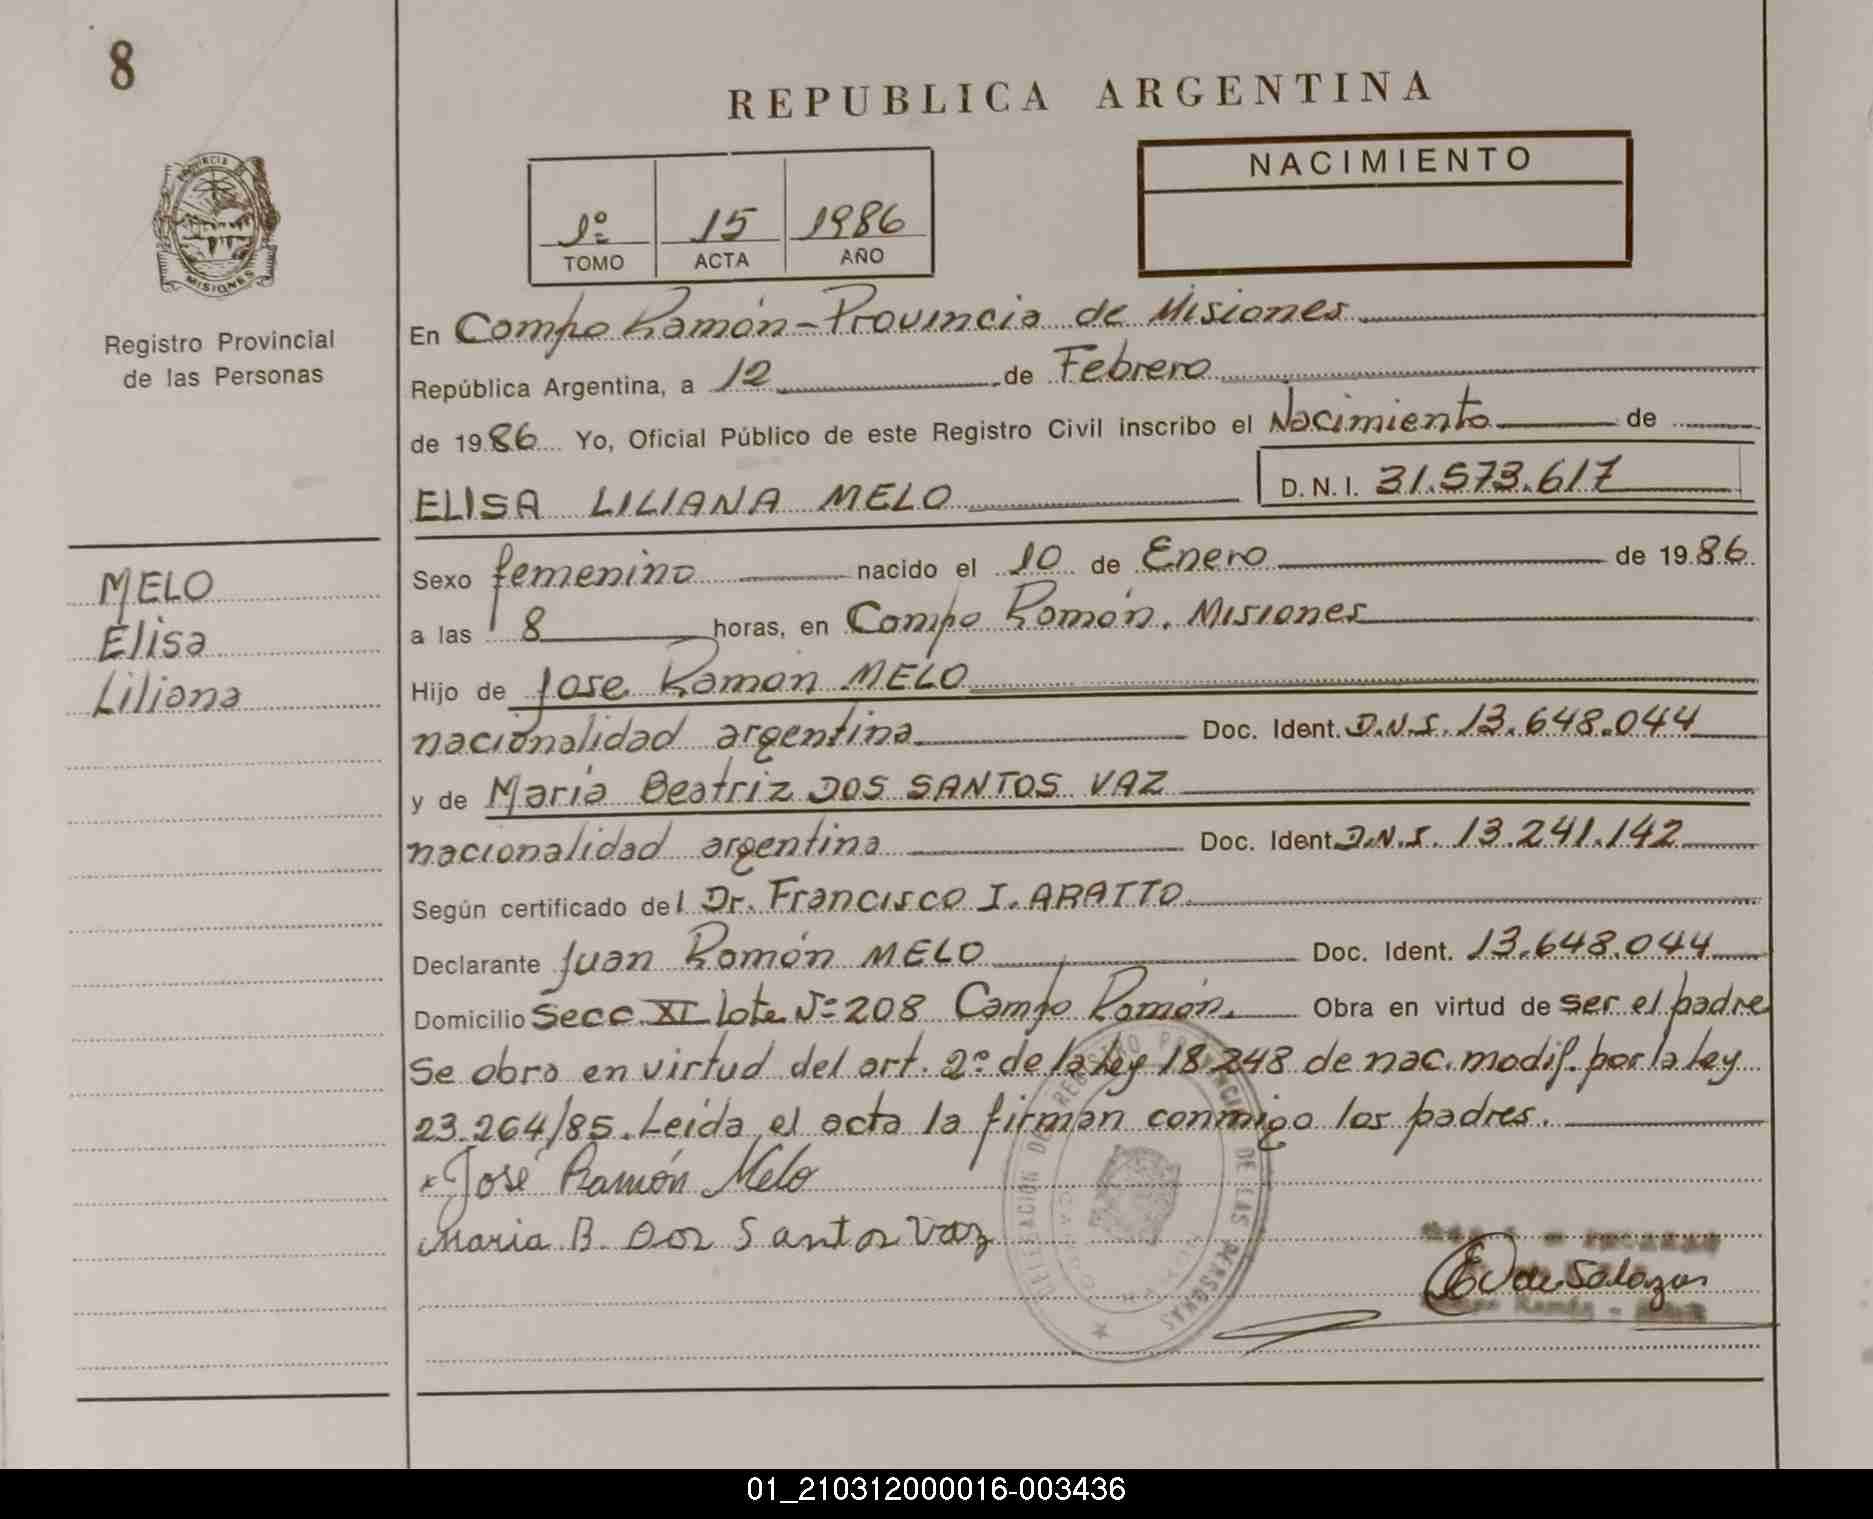 8
REPUBLICA ARGENTINA
NACIMIENTO
1º 15 1986
TOMO ACTA AÑO
PROVINCIA
MISIONES
Registro Provincial
de las Personas
En Campo Ramón - Provincia de Misiones
República Argentina, a 12 de Febrero
de 1986 Yo, Oficial Público de este Registro Civil inscribo el Nacimiento de
ELISA LILIANA MELO D.N.I. 31.573.617
MELO
Elisa
Liliana
Sexo femenino nacido el 10 de Enero de 1986
a las 8 horas, en Campo Ramón. Misiones
Hijo de Jose Ramon MELO
nacionalidad argentina Doc. Ident. D.N.I. 13.648.044
y de Maria Beatriz DOS SANTOS VAZ
nacionalidad argentina Doc. Ident. D.N.I. 13.241.142
Según certificado del Dr. Francisco I. ARATTO
Declarante Juan Ramón MELO Doc. Ident. 13.648.044
Domicilio Secc. XI Lote Nº 208 Campo Ramón. Obra en virtud de ser el padre
Se obro en virtud del art. 2º de la Ley 18.248 de nac. modif. por la Ley
23.264/85. Leida el acta la firman conmigo los padres.
José Ramón Melo
Maria B. Dos Santos Vaz
DELEGACION DEL REGISTRO PROVINCIAL DE LAS PERSONAS
E V de Salazar
Ramón
01_210312000016-003436